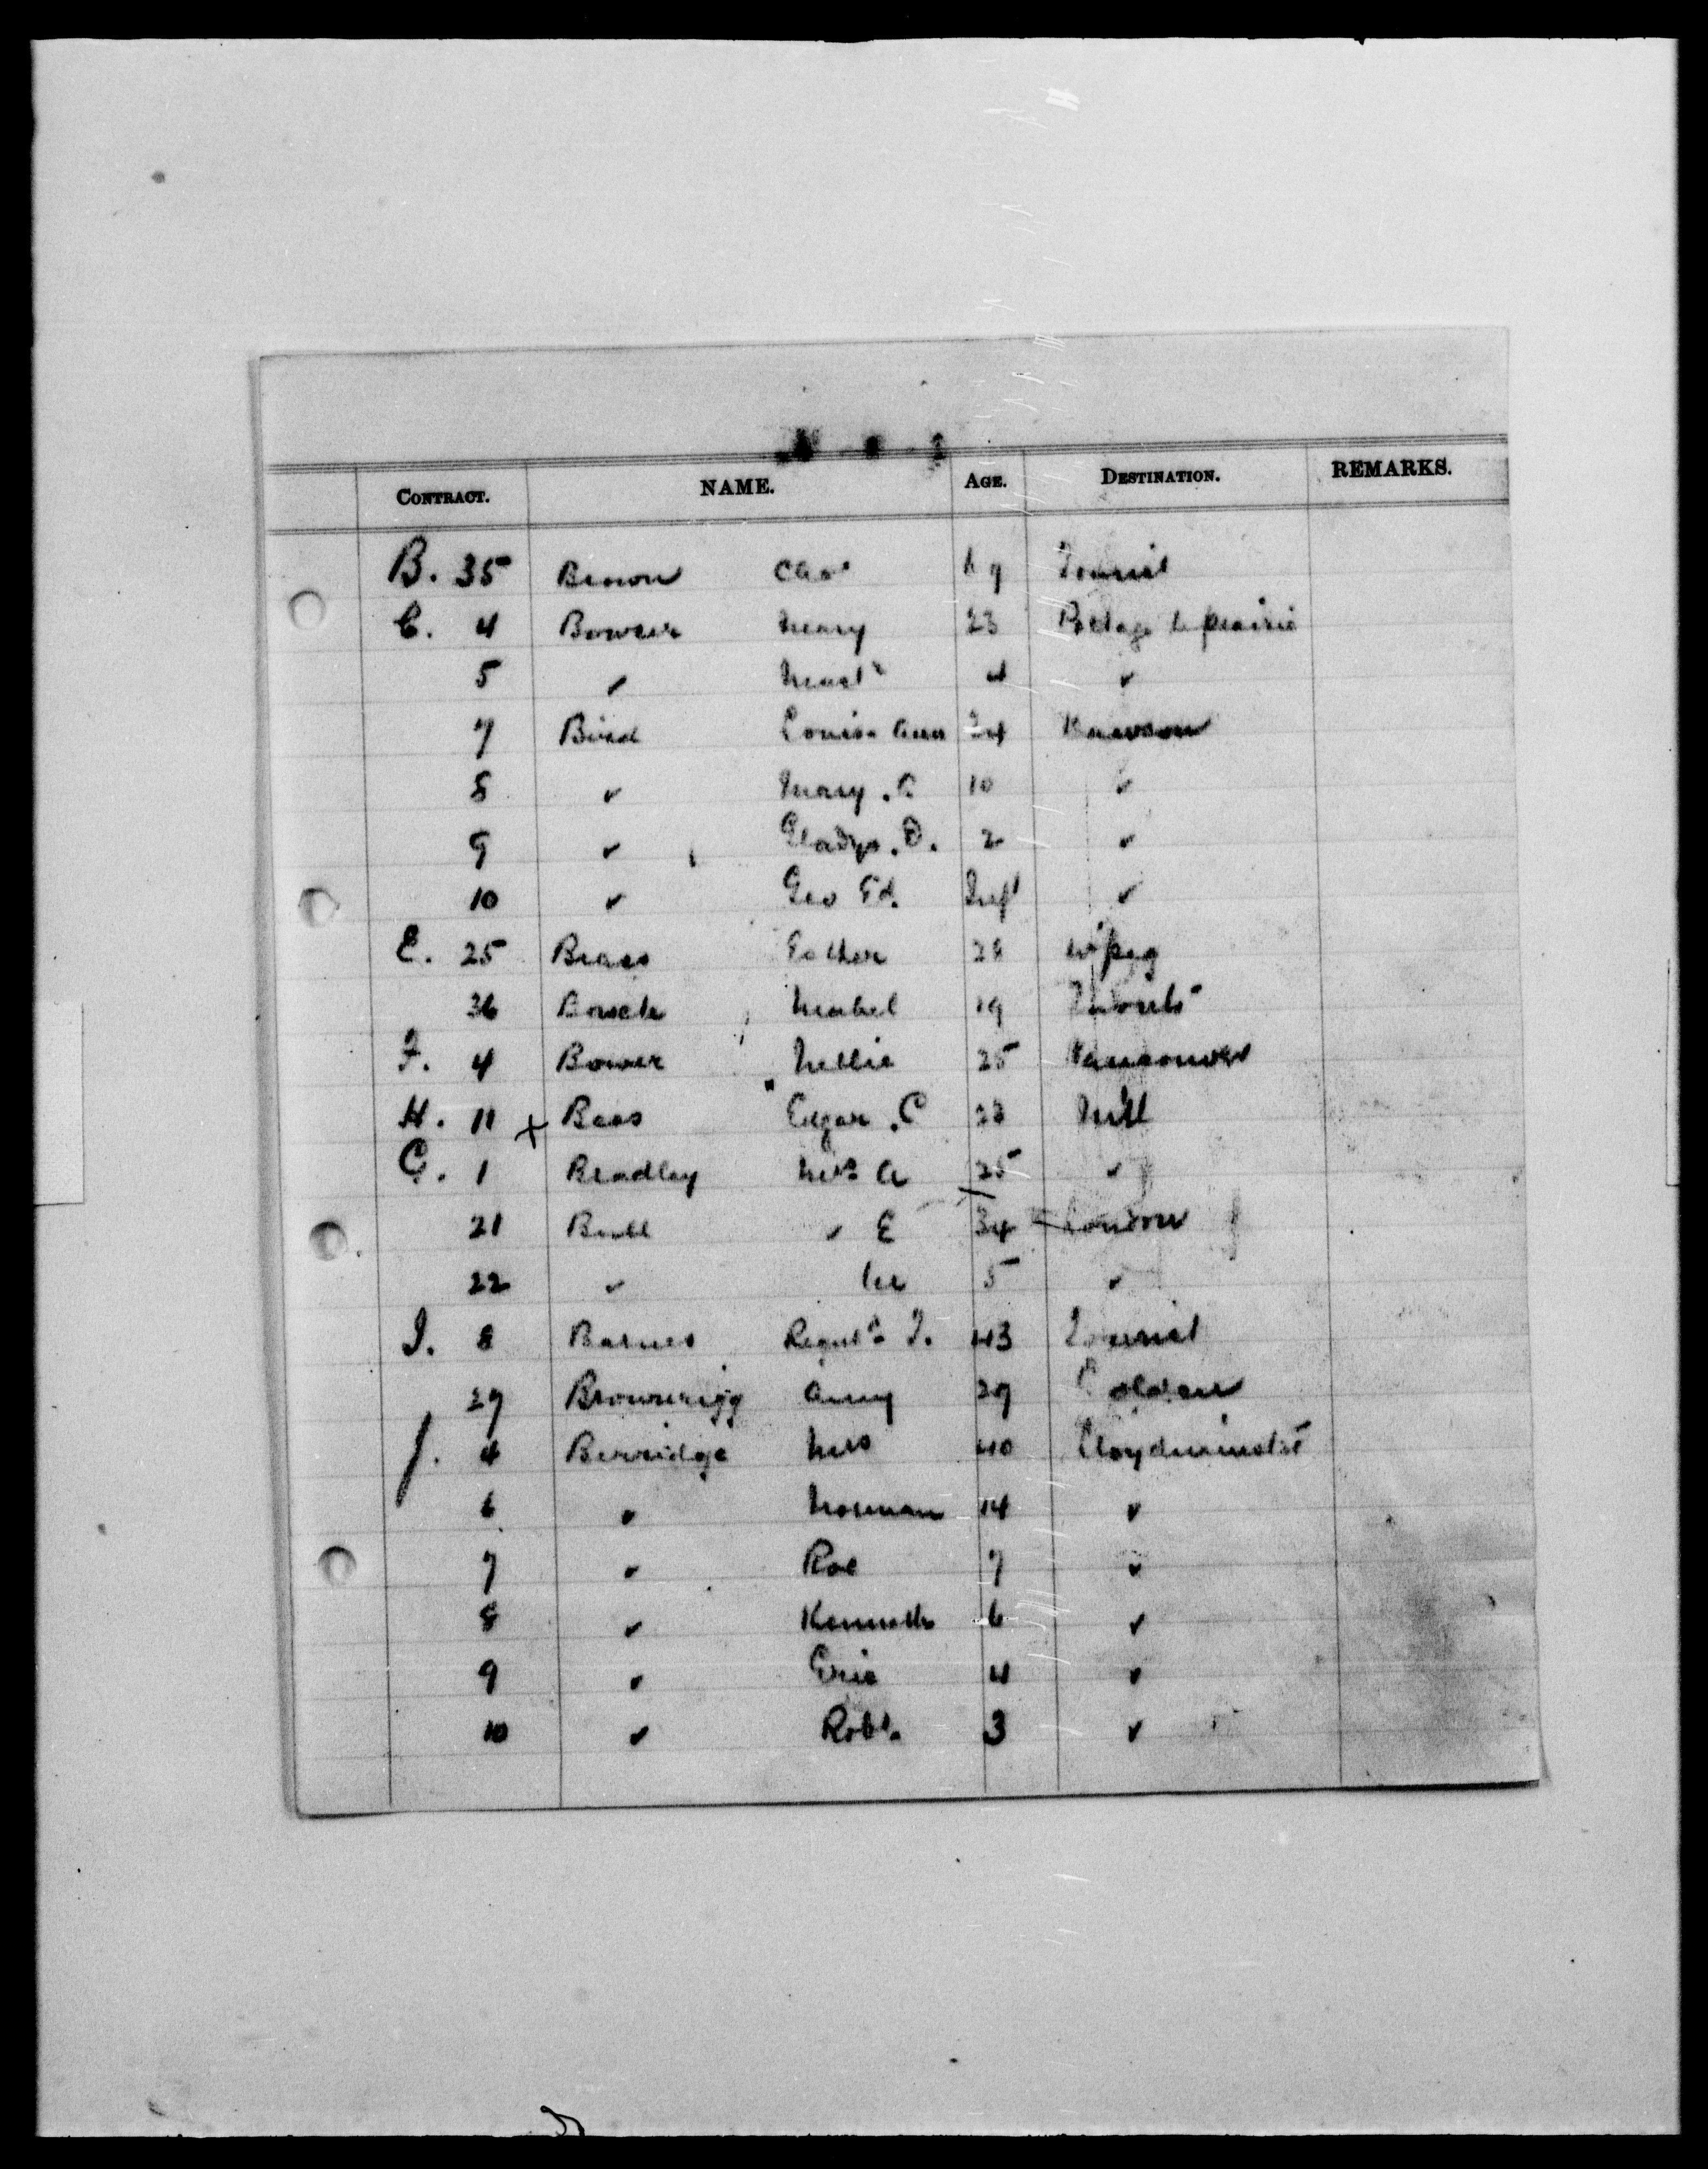 CONTRACT. NAME. AGE. DESTINATION. REMARKS.
B. 35 Brown Chas 19 Tourist
C. 4 Bowser Mary 23 Portage la prairie
5 ✓ 4 ✓
7 Bird Louisa Ann 24
8 ✓ Mary . 10 ✓
9 ✓ Gladys . D. 2 ✓
10 ✓ Geo Ed. Inft ✓
E. 25 Brass Esther 28 w'peg
36 Mabel 19 Toronto
F. 4 Bower Nellie 25 Vancouver
H. 11 x Bass Edgar . C 28 Mtl
G. 1 Bradley Mrs A 25 ✓
21 Bull ✓ E 34 London
22 ✓ 5 ✓
I. 8 Barnes Regnld J. 43 Tourist
29 Brownrigg Amy 29
J. 4 Berridge Mrs 40 Lloydminster
6 ✓ Norman 14 ✓
7 ✓ Roe 7 ✓
8 ✓ Kenneth 6 ✓
9 ✓ Eric 4 ✓
10 ✓ Robt. 3 ✓